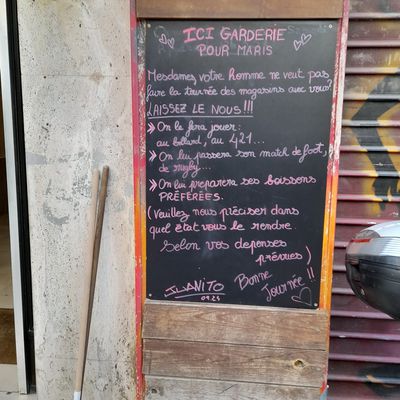 ICI GARDERIE
POUR MARIS
Mesdames, votre homme ne veut pas
faire la tournée des magasins avec vous?
LAISSEZ LE NOUS!!!
» On le fera jouer:
au billard, au 421...
» On lui passera son match de foot,
de rugby...
» On lui préparera ses boissons
PRÉFÉRÉES.
(Veuillez nous préciser dans
quel état vous le rendre.
Selon vos depenses
prévues)
Bonne
Journée!!
JUANITO